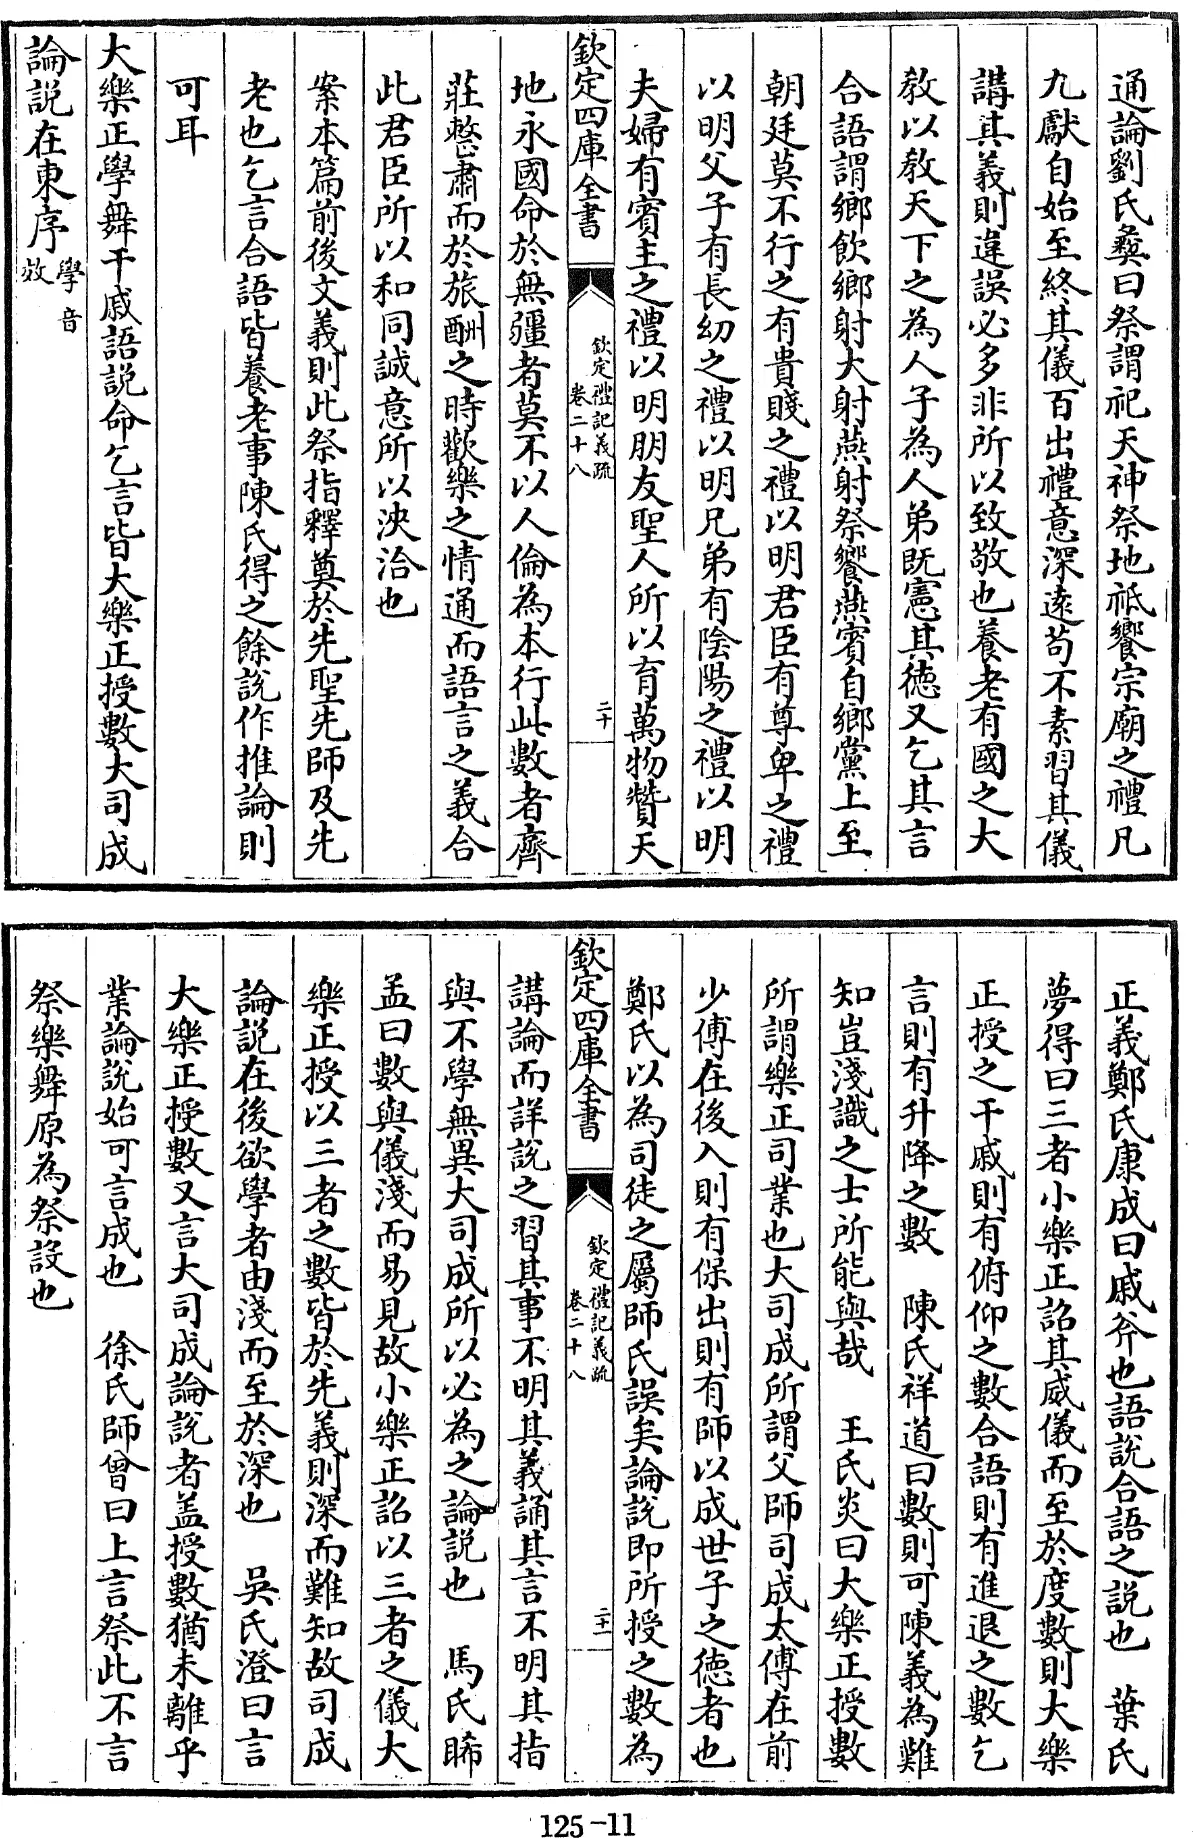 通論劉氏彜曰祭謂祀天神祭地祗饗宗廟之禮凡
九獻自始至終其儀百出禮意深遠苟不素習其儀
講其義則違誤必多非所以致敬也養老有國之大
教以教天下之為人子為人弟既憲其徳又乞其言
合語謂鄉飲鄉射大射燕射祭饗燕賓自鄉黨上至
朝廷莫不行之有貴賤之禮以明君臣有尊卑之禮
以明父子有長幼之禮以明兄弟有陰陽之禮以明
夫婦有賓主之禮以明朋友聖人所以育萬物贊天
欽定四庫全書
欽定禮記義疏
卷二十八
二十
地永國命於無疆者莫不以人倫為本行此數者齊
莊整肅而於旅酬之時歡樂之情通而語言之義合
此君臣所以和同誠意所以浹洽也
案本篇前後文義則此祭指釋奠於先聖先師及先
老也乞言合語皆養老事陳氏得之餘說作推論則
可耳
大樂正學舞干戚語説命乞言皆大樂正授數大司成
論説在東序學音效
正義鄭氏康成曰戚斧也語説合語之説也　葉氏
夢得曰三者小樂正詔其威儀而至於度數則大樂
正授之干戚則有俯仰之數合語則有進退之數乞
言則有升降之數　陳氏祥道曰數則可陳義為難
知豈淺識之士所能與哉　王氏炎曰大樂正授數
所謂樂正司業也大司成所謂父師司成太傅在前
少傅在後入則有保出則有師以成世子之德者也
鄭氏以為司徒之屬師氏誤矣論説即所授之數為
欽定四庫全書
欽定禮記義疏
卷二十八
二十一
講論而詳説之習其事不明其義誦其言不明其指
與不學無異大司成所以必為之論説也　馬氏睎
孟曰數與儀淺而易見故小樂正詔以三者之儀大
樂正授以三者之數皆於先義則深而難知故司成
論説在後欲學者由淺而至於深也　吳氏澄曰言
大樂正授數又言大司成論説者盖授數猶未離乎
業論説始可言成也　徐氏師曾曰上言祭此不言
祭樂舞原為祭設也
125-11